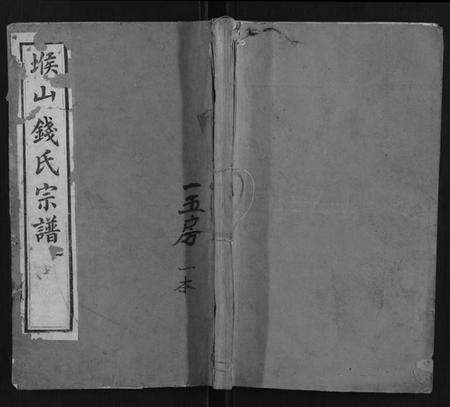 堠山錢氏宗譜
一五房
一本